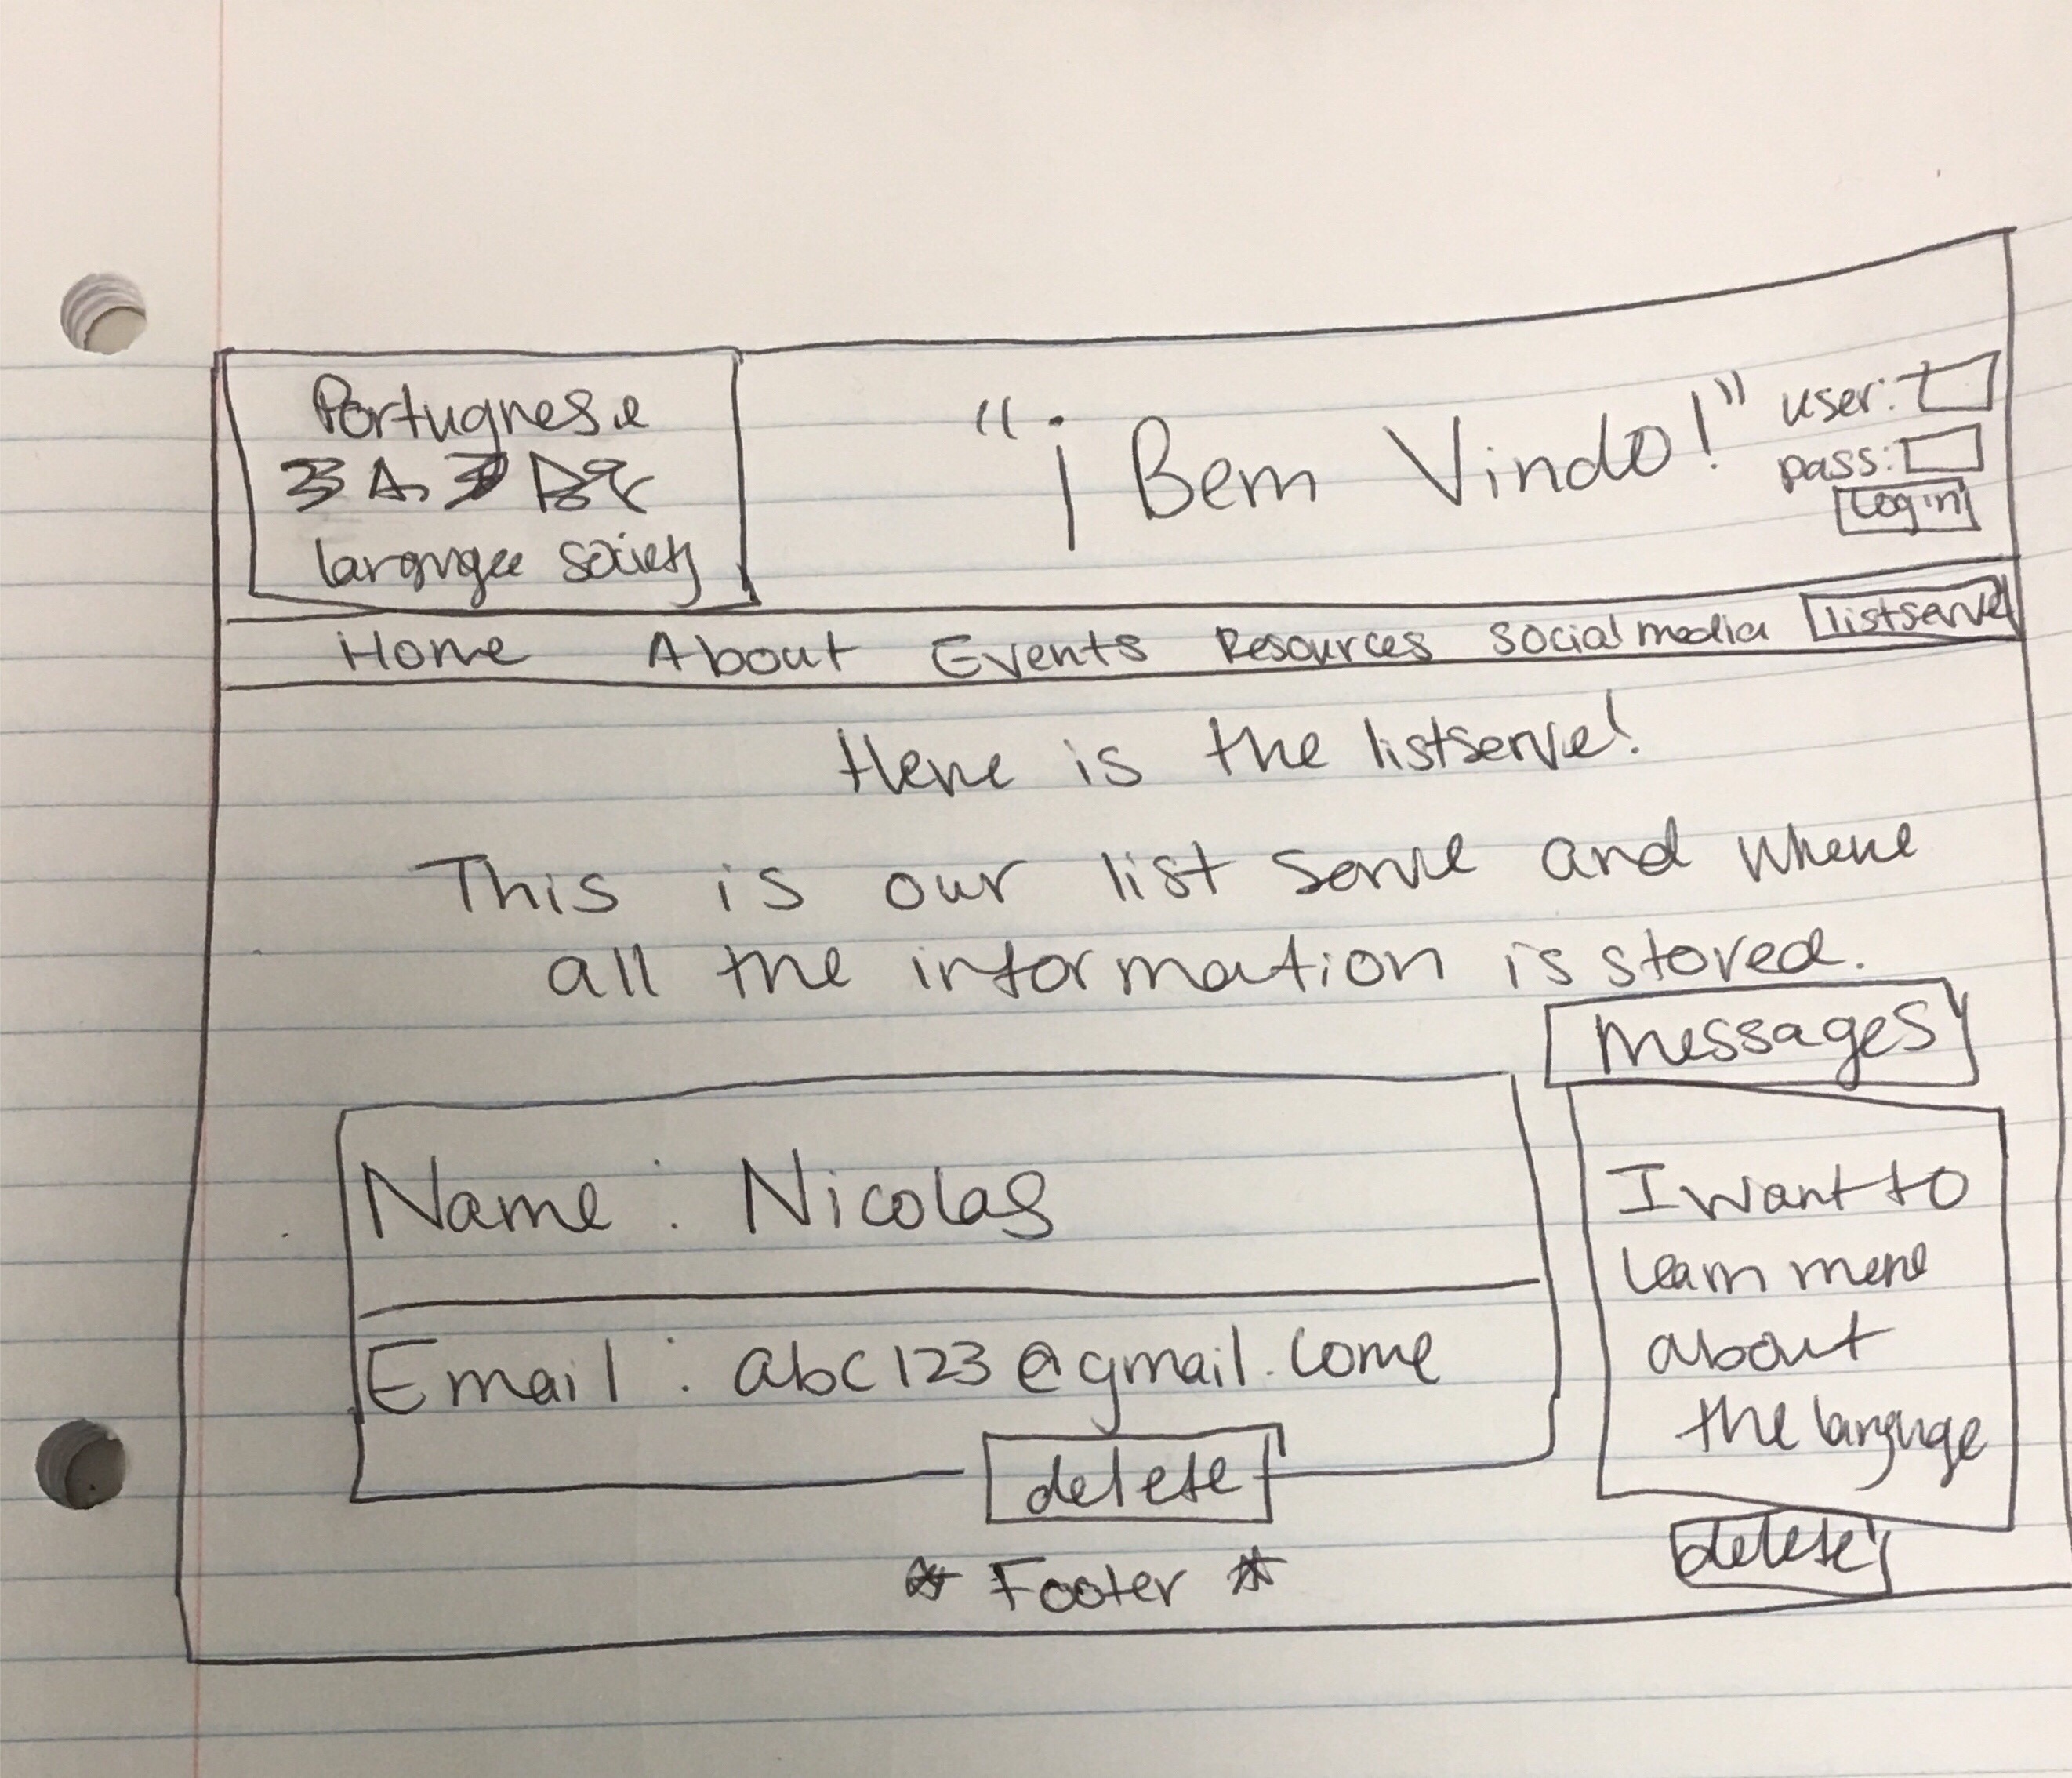 Portugnese
language society
"¡ Bem Vindo!"
user:
pass:
login
Home About Events Resources social media listserve
Here is the listserve!
This is our list serve and where
all the information is stored.
Messages
Name : Nicolas
Email : abc123@gmail.come
delete
I want to
learn more
about
the language
delete
* Footer *